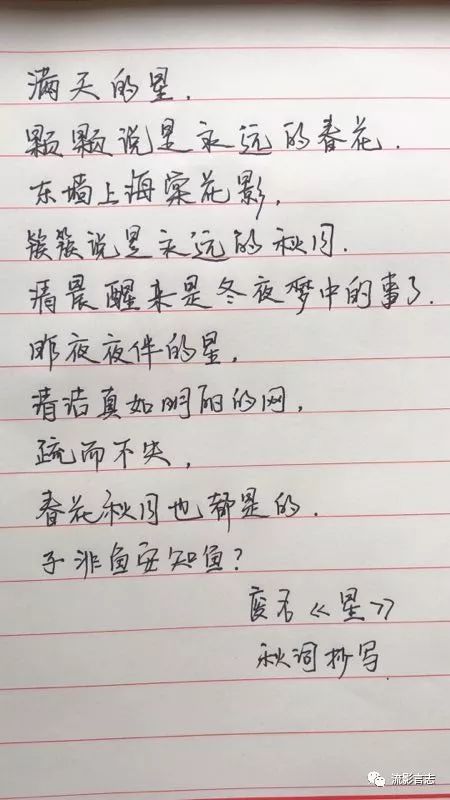 满天的星,
颗颗说是永远的春花.
东墙上海棠花影,
簇簇说是永远的秋月.
清晨醒来是冬夜梦中的事了.
昨夜夜伴的星,
清洁真如明丽的网,
疏而不失,
春花秋月也都是的.
子非鱼安知鱼?
废名《星》
秋词抄写
流影言志